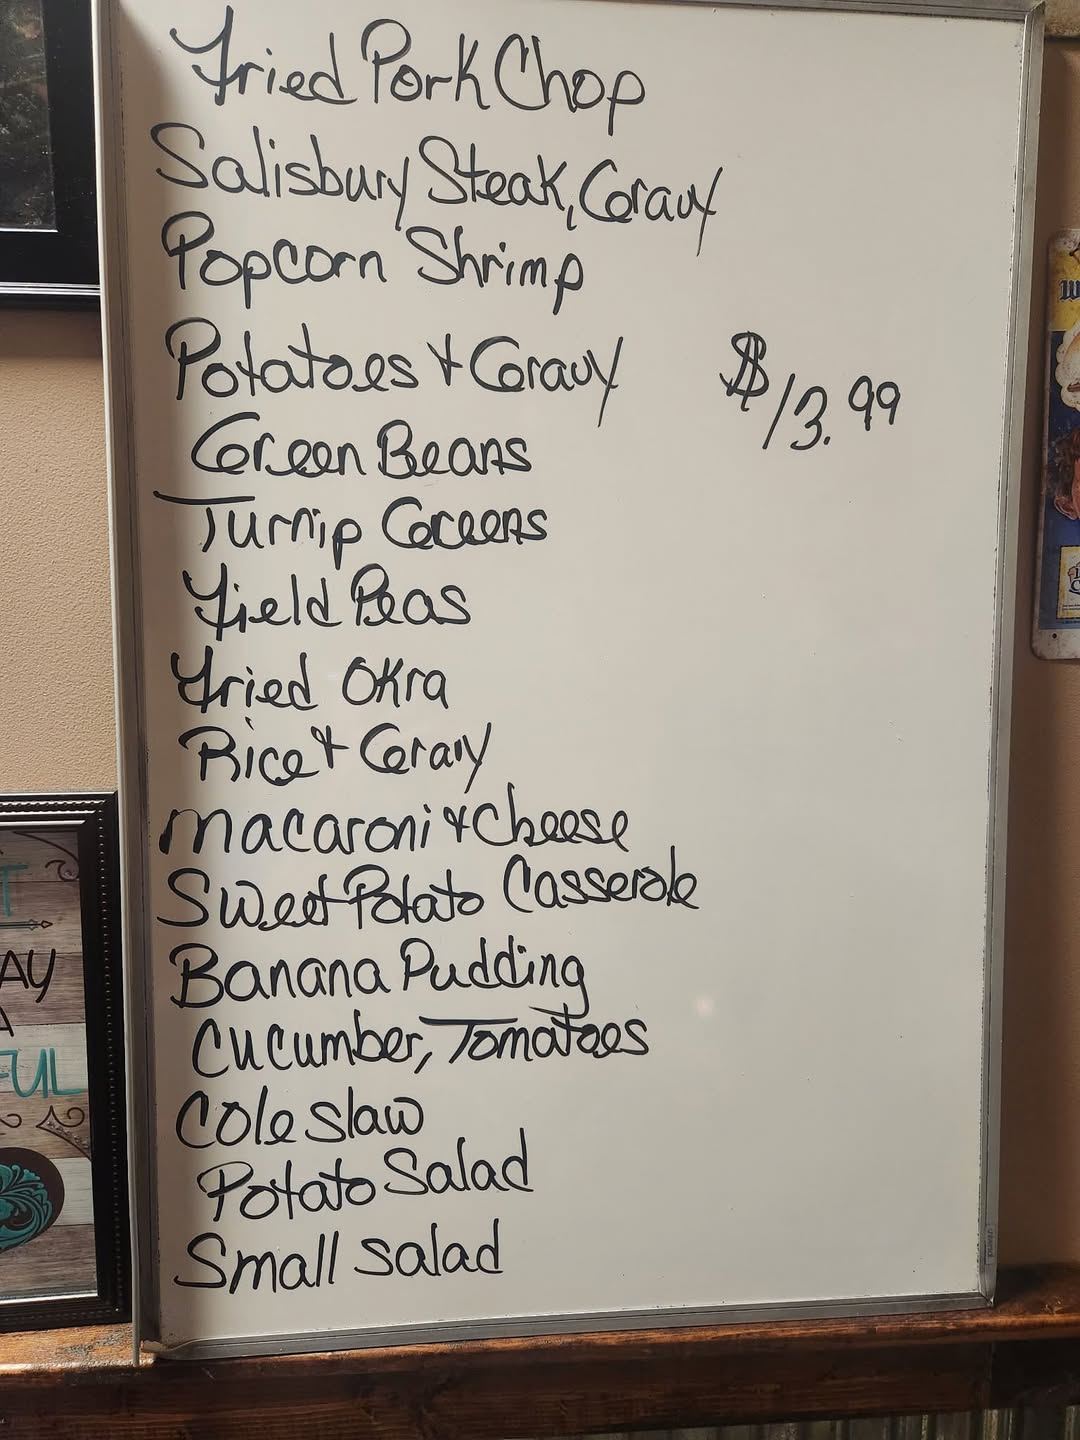 Fried Pork Chop
Salisbury Steak, Gravy
Popcorn Shrimp
Potatoes & Gravy $13.99
Green Beans
Turnip Greens
Field Peas
Fried Okra
Rice & Gravy
Macaroni & Cheese
Sweet Potato Casserole
Banana Pudding
Cucumber, Tomatoes
Cole slaw
Potato Salad
Small salad
T
AY
A
FUL
W